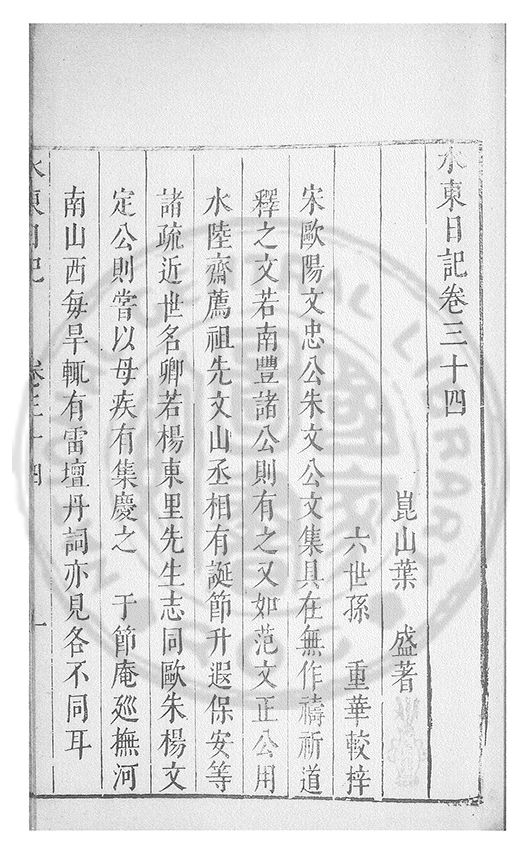 水東日記卷三十四
崑山葉　盛著
六世孫　重華較梓
宋歐陽文忠公朱文公文集具在無作禱祈道
釋之文若南豐諸公則有之又如范文正公用
水陸齋薦祖先文山丞相有誕節升遐保安等
諸疏近世名卿若楊東里先生志同歐朱楊文
定公則嘗以母疾有集慶之　于節庵巡撫河
南山西每旱輒有雷壇丹詞亦見各不同耳
水東日記　卷三十四　一